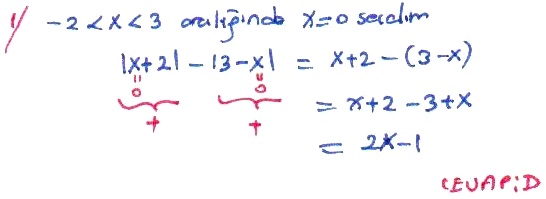 1/ -2<x<3 aralığında x=0 seçelim
|x+2| - |3-x| = x+2-(3-x)
0 0 = x+2-3+x
+ + = 2x-1
CEVAP:D